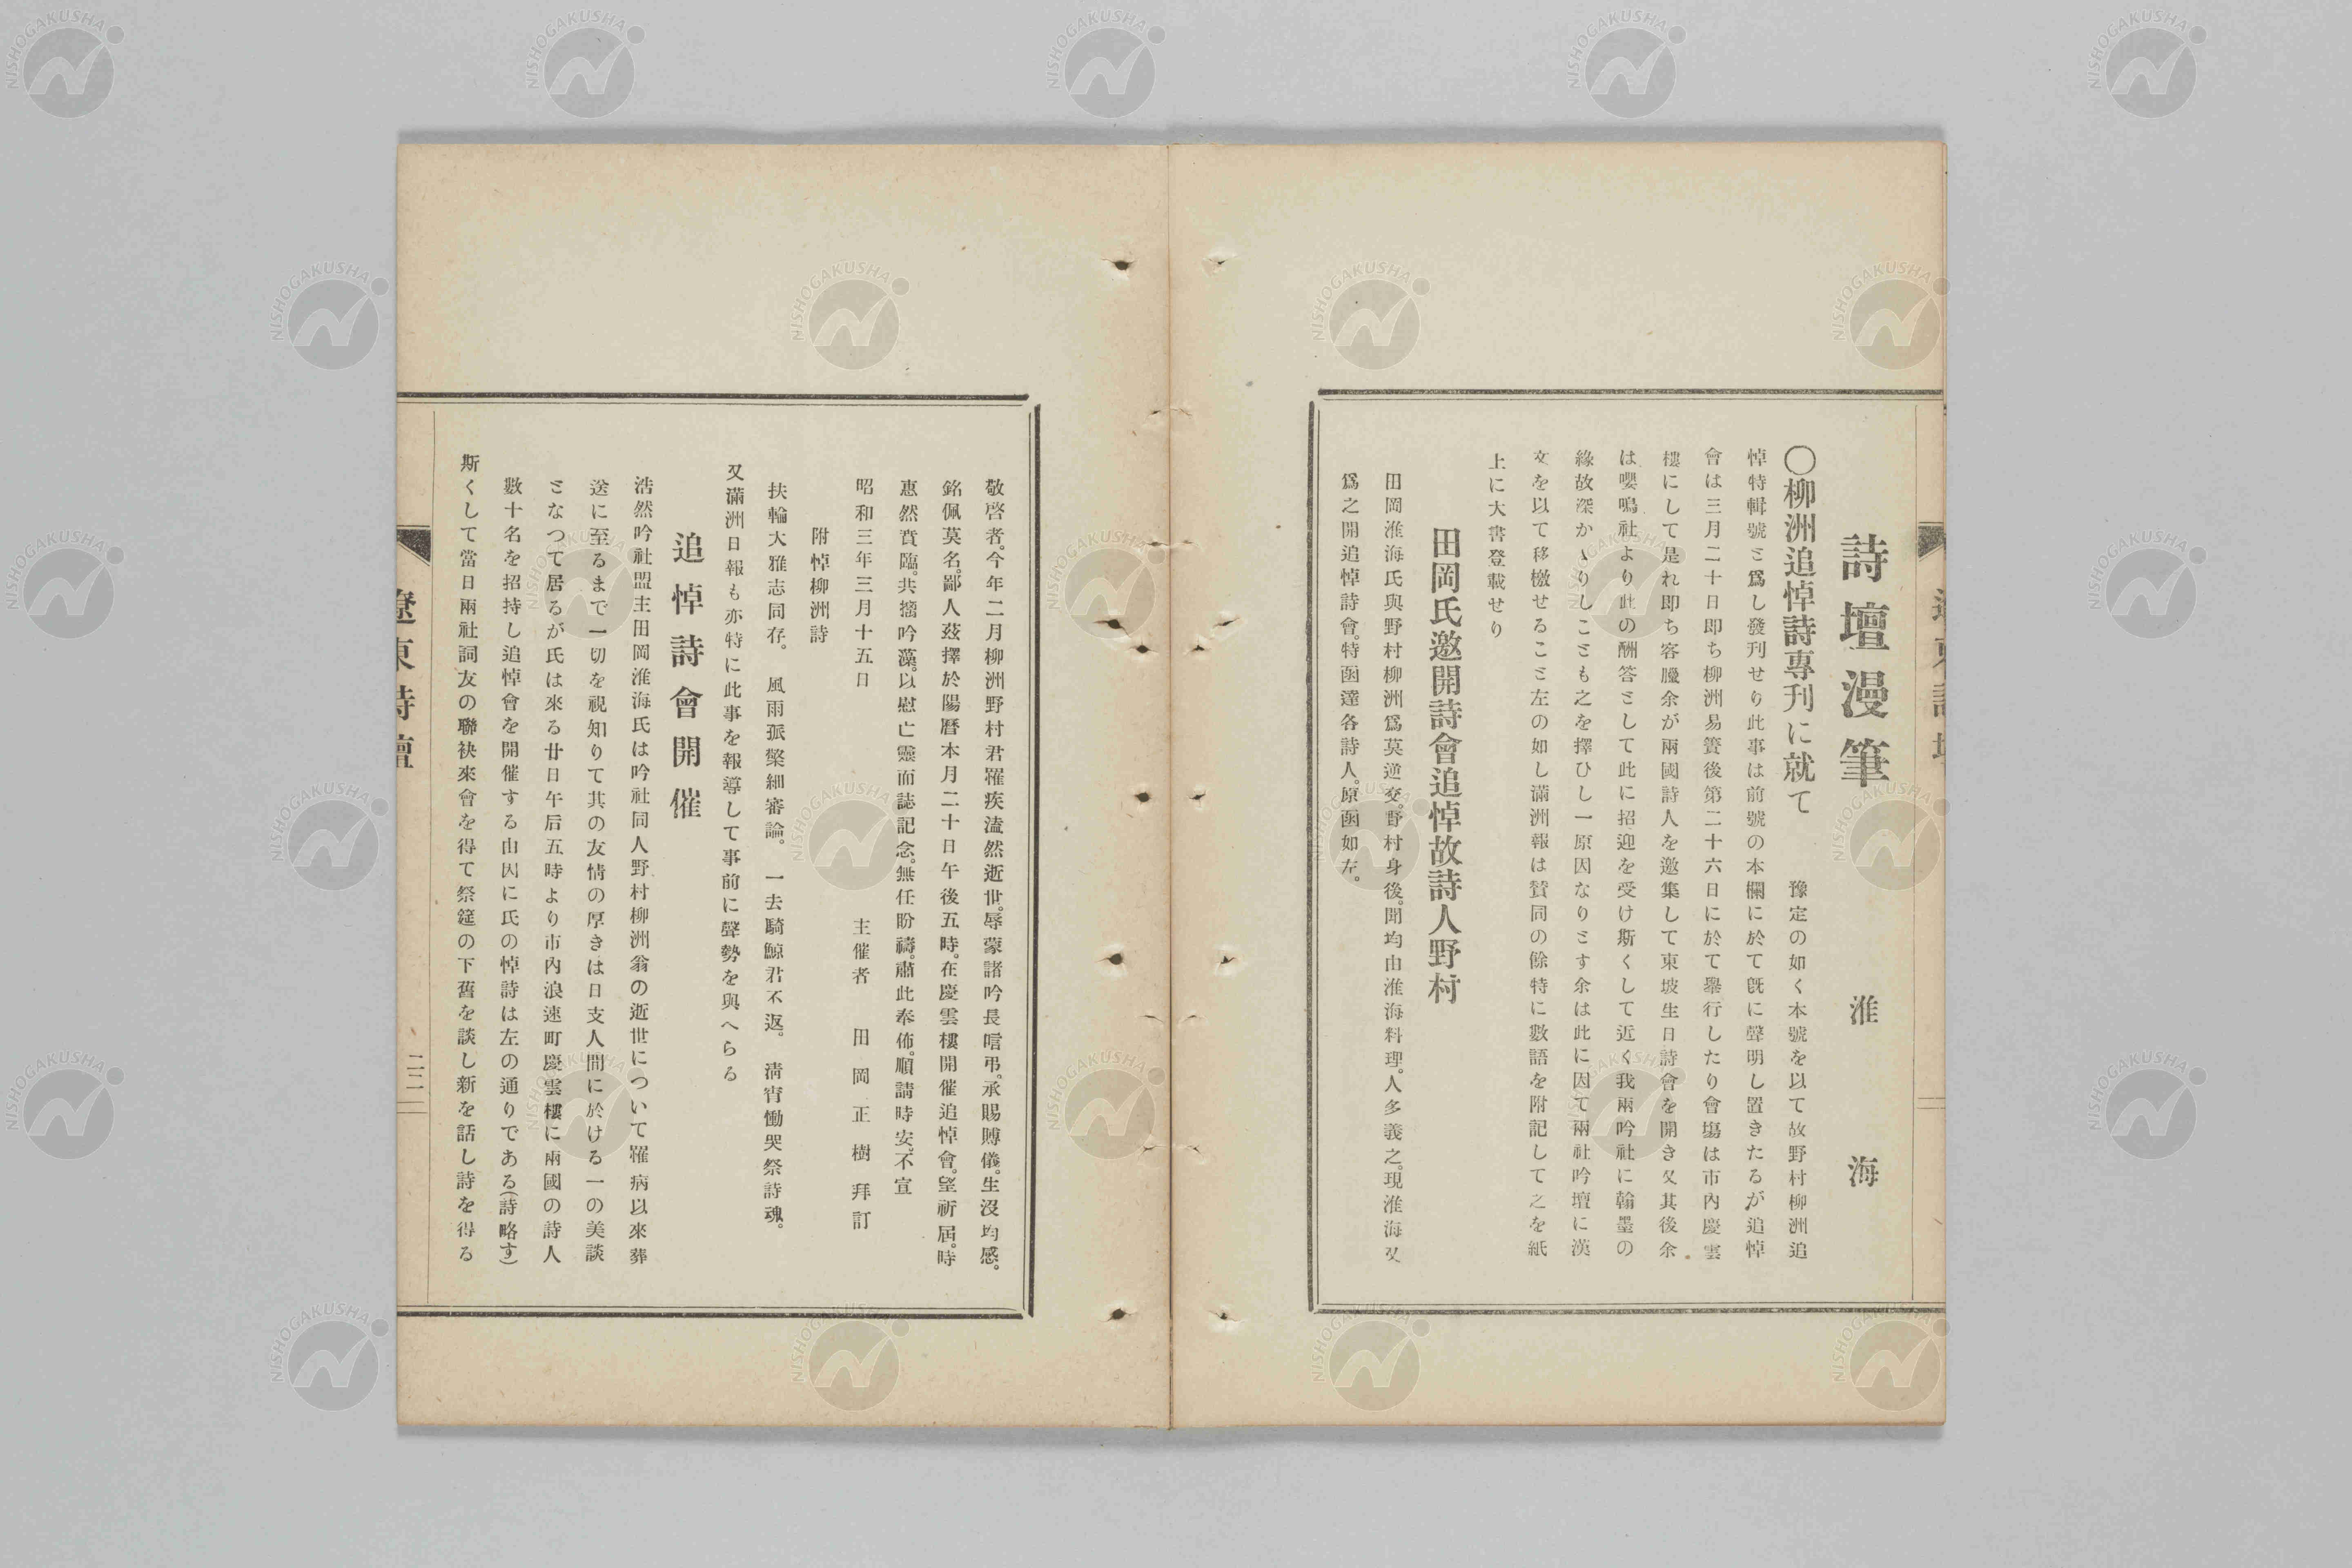 遼東詩壇
詩壇漫筆
淮海
〇柳洲追悼詩專刊に就て　豫定の如く本號を以て故野村柳洲追
悼特輯號ミ爲し發刊せり此事は前號の本欄に於て既に聲明し置きたるが追悼
會は三月二十日即ち柳洲易簀後第二十六日に於て擧行したり會場は市內慶雲
樓にして是れ即ち客臘余が兩國詩人を邀集して東坡生日詩會を開き又其後余
は嚶鳴社より此の酬答ミして此に招迎を受け斯くして近く我兩吟社に翰墨の
緣故深かゝりしこミも之を擇ひし一原因なりミす余は此に因て兩社吟壇に漢
文を以て移檄せるこミ左の如し滿洲報は賛同の餘特に數語を附記して之を紙
上に大書登載せり
田岡氏邀開詩會追悼故詩人野村
田岡淮海氏與野村柳洲爲莫逆交。野村身後。聞均由淮海料理。人多義之。現淮海又
爲之開追悼詩會。特函達各詩人。原函如左。
敬啓者。今年二月柳洲野村君罹疾溘然逝世。辱蒙諸吟長唁弔。承賜賻儀。生沒均感。
銘佩莫名。鄙人茲擇於陽曆本月二十日午後五時。在慶雲樓開催追悼會。望祈屆時
惠然賁臨。共摛吟藻。以慰亡靈而誌記念。無任盼禱。肅此奉佈。順請時安。不宣
昭和三年三月十五日　主催者　田岡正樹拜訂
附悼柳洲詩
扶輪大雅志同存。風雨孤檠細審論。一去騎鯨君不返。淸宵慟哭祭詩魂。
又滿洲日報も亦特に此事を報導して事前に聲勢を與へらる
追悼詩會開催
浩然吟社盟主田岡淮海氏は吟社同人野村柳洲翁の逝世について罹病以來葬
送に至るまで一切を視知りて其の友情の厚きは日支人間に於ける一の美談
ミなつて居るが氏は來る廿日午后五時より市內浪速町慶雲樓に兩國の詩人
數十名を招待し追悼會を開催する由因に氏の悼詩は左の通りである(詩略す)
斯くして當日兩社詞友の聯袂來會を得て祭筵の下舊を談し新を話し詩を得る
遼東詩壇
二二